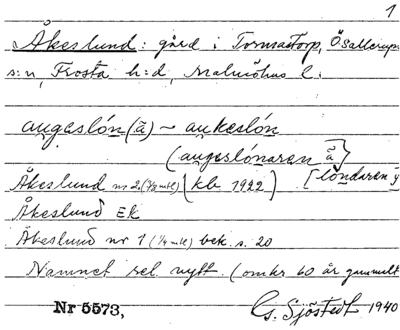 1
Åkeslund: gård i Tormastorp, Ö Sallerups
s:n, Frosta h:d, Malmöhus l.
au̯gəslón (ã) ~ au̯kəslón
(au̯gəslónaren ã)
Åkeslund nr 2 (3/8 mtl) (kb 1922) [lóndaren
Åkeslund Ek
Åkeslund nr 1 (1/4 mtl) bek. s. 20
Namnet rel. nytt. (omkr 60 år gammalt
Nr 5573, G. Sjöstedt 1940